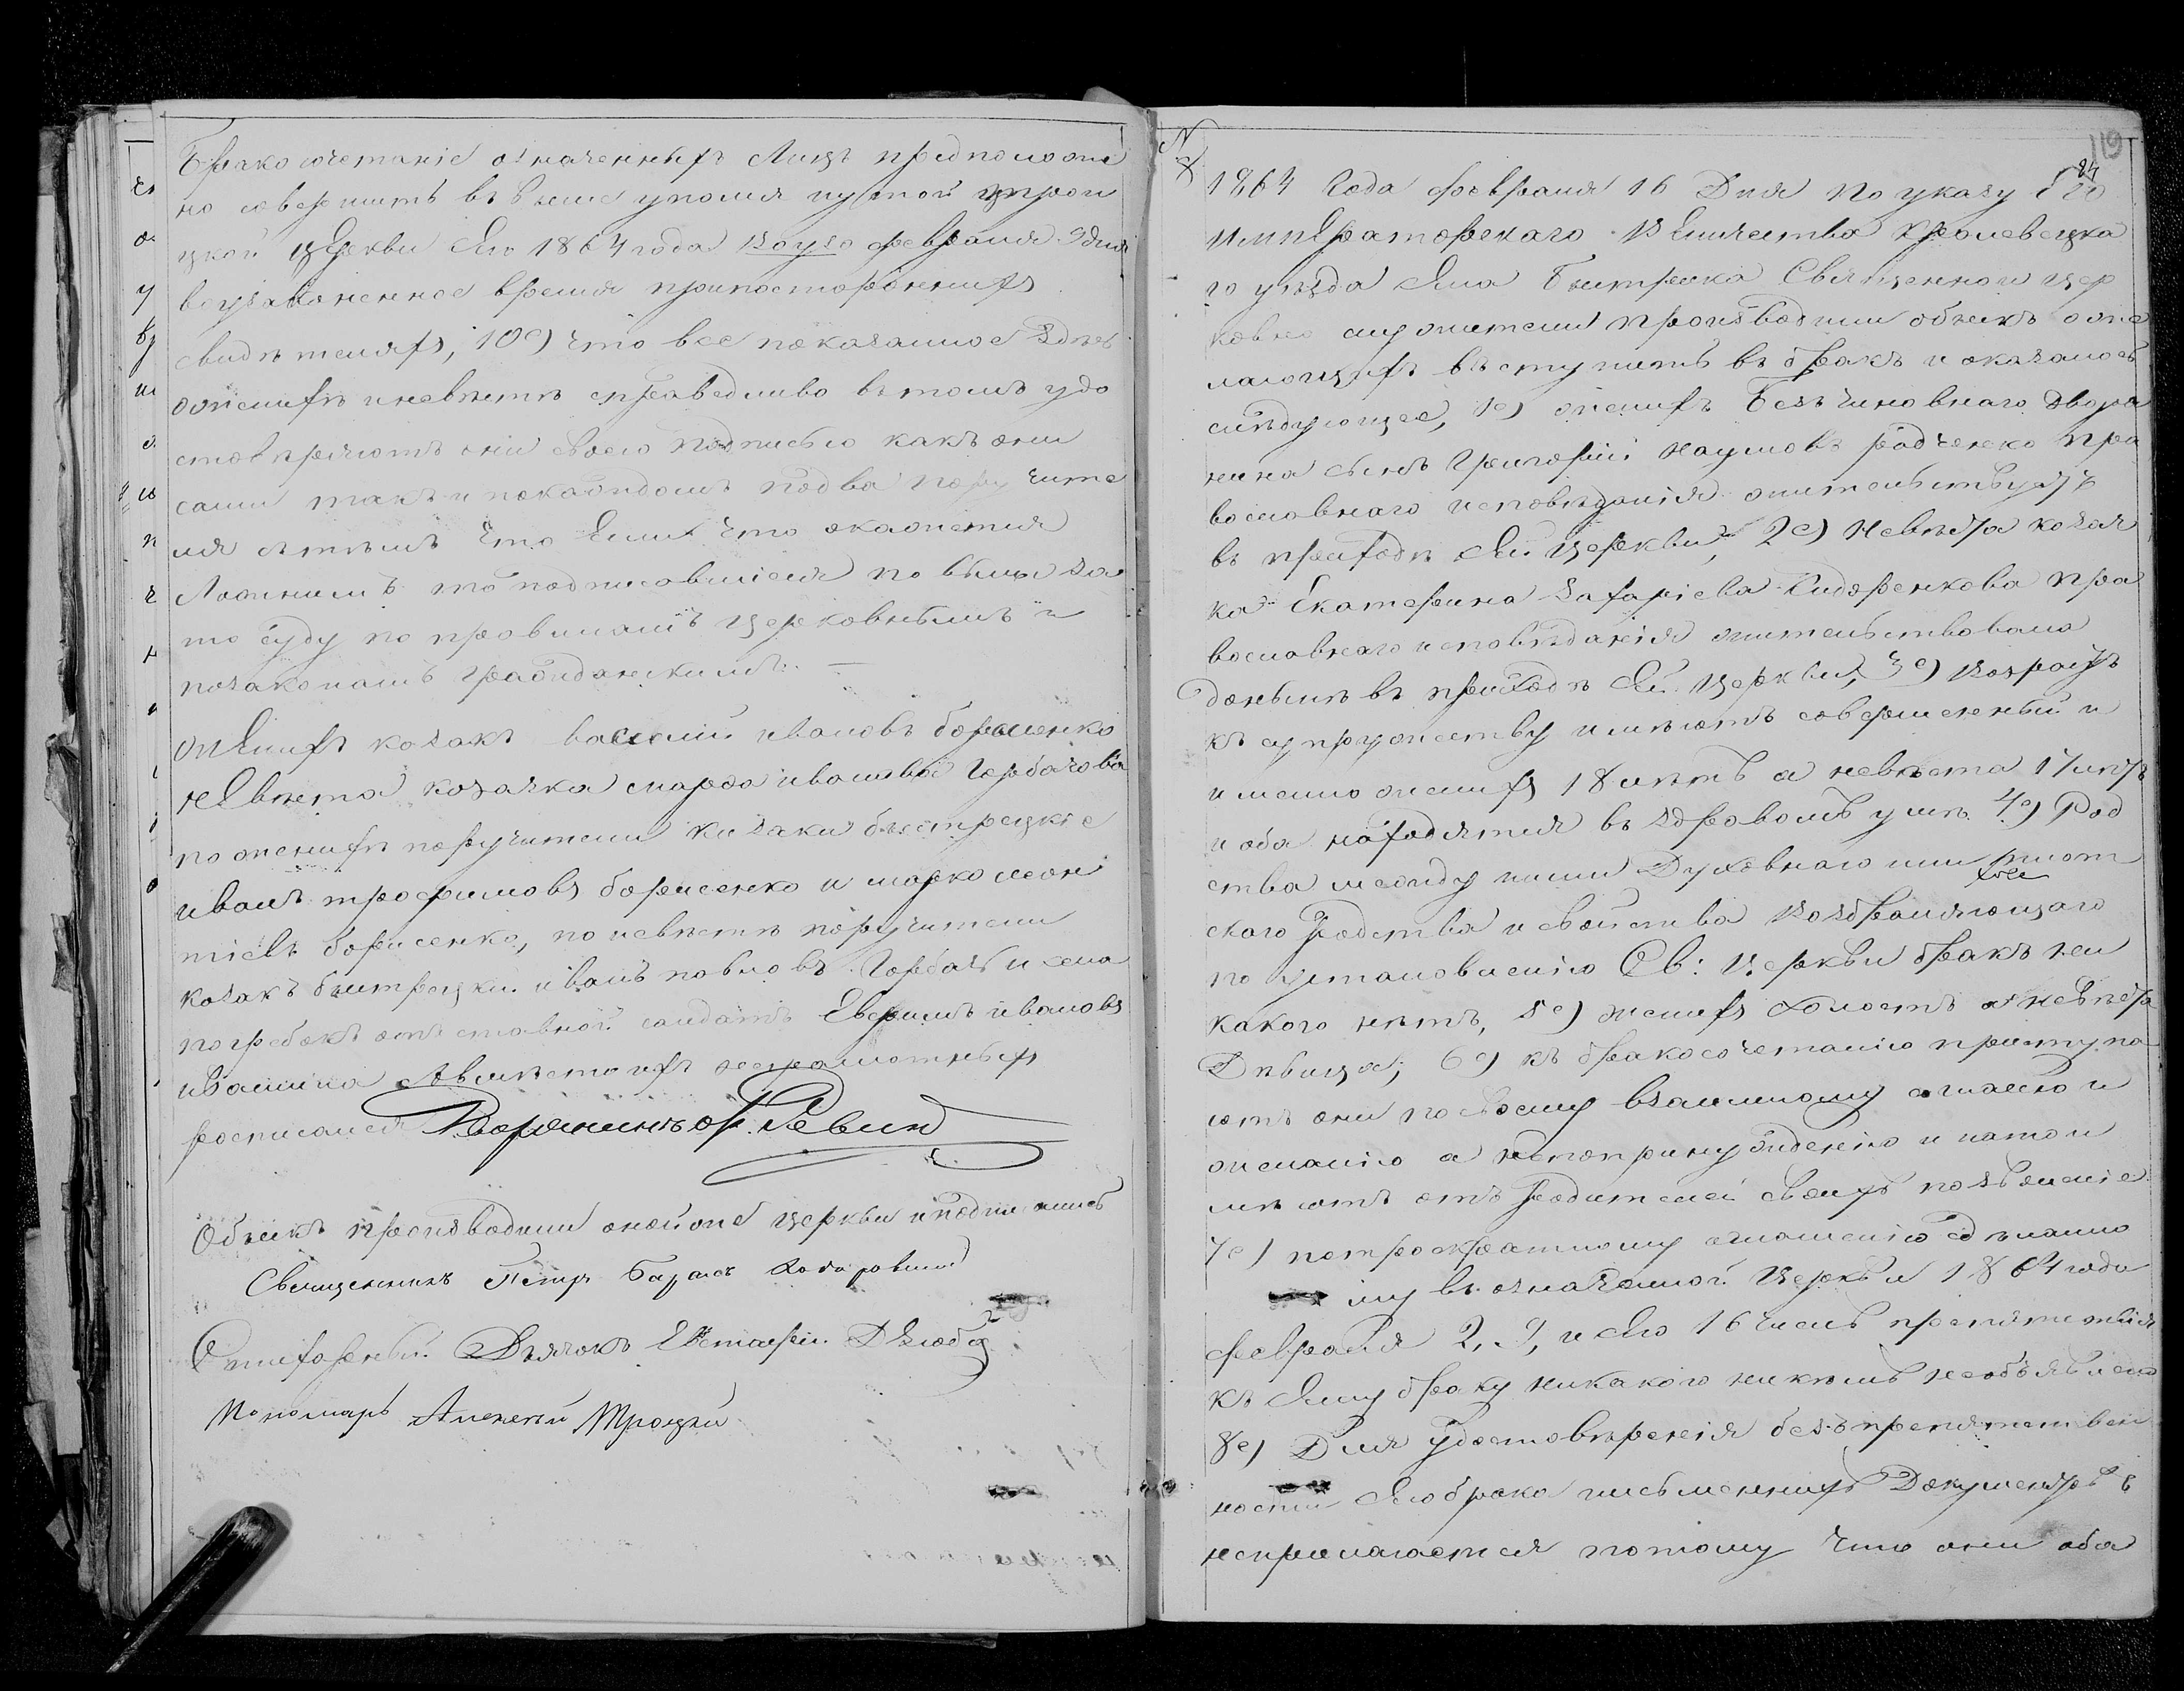 Бракосочетаніе означенныхъ Лицъ предположе
но совершить въ выше упомянутой трои
цкой Церкви Сего 1864 года Февраля 9 дня
въ узаконенное время при постороннихъ
свидѣтеляхъ, 10е) что все показанное здѣсь
о женихѣ и невѣстѣ справедливо въ томъ удо
стовѣряютъ они своею подписью какъ они
сами такъ и по каждомъ по два поручите
ля съ тѣмъ что Если что окажется
Ложнимъ то подписавшіеся повынны
то суду по правиламъ Церковнымъ и
по законамъ гражданскимъ. —
Женихъ козакъ василій ивановъ борисенко
Невѣста козачка марфа иванова Горбачова
по женихѣ поручители козаки быстрецкіе
иванъ трофимовъ борисенко и марко леон
тіевъ борисенко, по невѣстѣ поручители
козакъ быстрецкій иванъ павловъ Горбачъ и
погребокъ отставной солдатъ Евфимъ ивановъ
ивашина А вмѣсто ихъ неграмотныхъ
росписался Дворянинъ Левицк
Обыскъ производили оной же церкви и подписались
Священникъ Петръ
Стихарный Дьячокъ Евстафій Дзюба
Пономарь Алексѣй Троцкій
N 8
119
24
1864 Года февраля 16 Дня По указу Его
Императорскаго Величества Кролевецка
го уѣзда Села Быстрика Священно и цер
ковно служители производили обыскъ о же
лающихъ вступить въ бракъ и оказалось
слѣдующее, 1е) женихъ Безъ Чиновнаго дворя
нина сынъ Григорій наумовъ радченко пра
вославнаго исповѣданія жительствуетъ
въ приходѣ сей Церкви, 2е) Невѣста козач
ка Екатерина Захаріева Сидоренкова пра
вославнаго исповѣданія жительствовала
донынѣ въ приходѣ сей церкви, 3е) Возрастъ
къ супружеству имѣютъ совершенный и
именно женихъ 18 лѣтъ а невѣста 17 лѣтъ
и оба находятся въ здравомъ умѣ. 4е) Род
ства между ними Духовнаго или плот
скаго родства и свойства Возбраняющаго
по установленію Св: Церкви бракъ ни
какого нѣтъ, 5е) женихъ холостъ а невѣста
Дѣвица; 6е) къ бракосочетанію приступа
ютъ они по своему взаимному согласію и
желанію а не по принужденію и на то и
мѣютъ отъ родителей своихъ позволеніе
7е) по троекратному оглашенію сдѣланно
му въ означенной Церкви 1864 года
февраля 2, 9, и сего 16 числъ препятствія
къ Сему браку никакого никемъ необъявлено
8е) Для удостовѣренія безпрепятствен
ности Сего брака письменныхъ Документовъ
неприлагается потому Что они оба